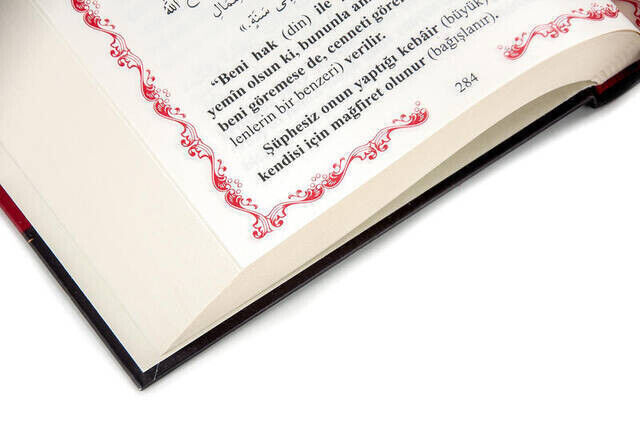 سَنَةٍ.»
“Beni hak (din) ile
yemîn olsun ki, bununla
beni göremese de, cenneti
lenlerin bir benzeri) verilir.
Şüphesiz onun yaptığı kebâir (büyük)
kendisi için mağfiret olunur (bağışlanır).
284